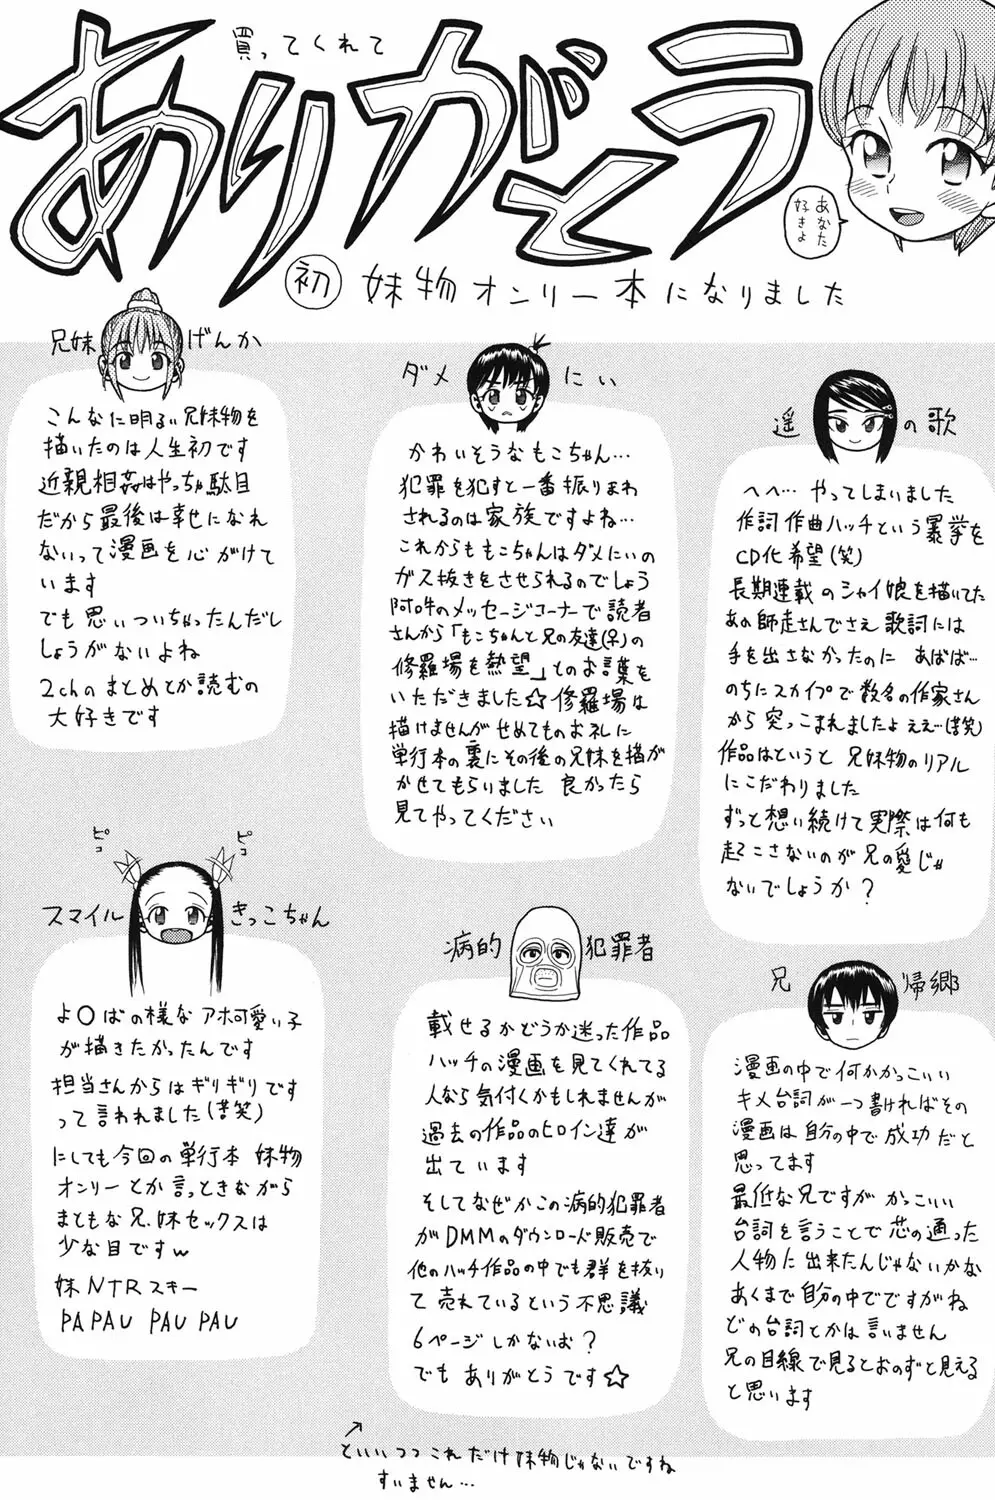 買ってくれて
ありがとう
あなた
好きよ
初 妹物オンリー本になりました
兄妹げんか
こんなに明るい兄妹物を
描いたのは人生初です
近親相姦はやっちゃ駄目
だから最後は幸せになれ
ないって漫画を心がけて
います
でも思いついちゃったんだし
しょうがないよね
2chのまとめとか読むの
大好きです
ダメにい
かわいそうなもこちゃん…
犯罪を犯すと一番振りまわ
されるのは家族ですよね…
これからももこちゃんはダメにいの
ガス抜きをさせられるのでしょう
阿吽のメッセージコーナーで読者
さんから「もこちゃんと兄の友達(♀)の
修羅場を熱望」とのお言葉を
いただきました☆修羅場は
描けませんがせめてものお礼に
単行本の裏にその後の兄妹を描が
かせてもらいました 良かったら
見てやってください
遥の歌
へへ… やってしまいました
作詞作曲ハッチという暴挙を
CD化希望(笑)
長期連載のシャイ娘を描いてた
あの師走さんでさえ歌詞には
手を出さなかったのに あばば…
のちにスカイプで数名の作家さん
から突っこまれましたよ ええ…(苦笑)
作品はというと 兄妹物のリアル
にこだわりました
ずっと想い続けて実際は何も
起こさないのが兄の愛じゃ
ないでしょうか?
ピコ
ピコ
スマイルきっこちゃん
よ○ばの様なアホ可愛い子
が描きたかったんです
担当さんからはギリギリです
って言われました(苦笑)
にしても今回の単行本 妹物
オンリーとか言っときながら
まともな兄妹セックスは
少な目ですw
妹NTRスキー
PAPAU PAU PAU
病的犯罪者
載せるかどうか迷った作品
ハッチの漫画を見てくれてる
人なら気付くかもしれませんが
過去の作品のヒロイン達が
出ています
そしてなぜかこの病的犯罪者
がDMMのダウンロード販売で
他のハッチ作品の中でも群を抜い
て売れているという不思議
6ページしかないお?
でもありがとうです☆
といいつつこれだけ妹物じゃないですね
すいません…
兄帰郷
漫画の中で何かかっこいい
キメ台詞が一つ書ければその
漫画は自分の中で成功だと
思ってます
最低な兄ですが かっこいい
台詞を言うことで芯の通った
人物に出来たんじゃないかな
あくまで自分の中でですがね
どの台詞とかは言いません
兄の目線で見るとおのずと見える
と思います